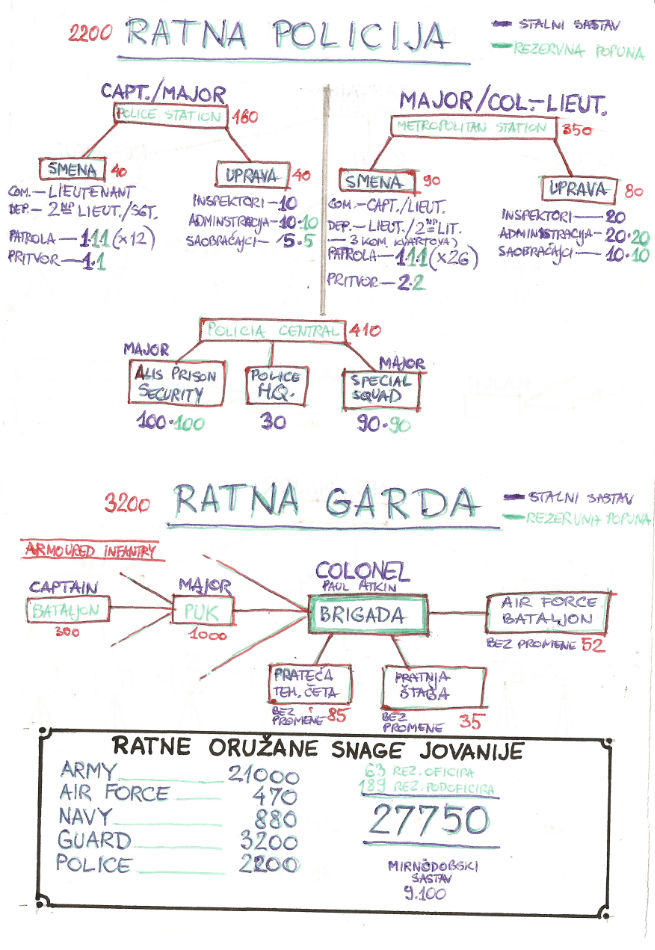 2200 RATNA POLICIJA
STALNI SASTAV
REZERVNA POPUNA
CAPT./MAJOR
POLICE STATION 160
SMENA 40
COM.— LIEUTENANT
DEP.— 2ND LIEUT./SGT.
PATROLA — 1·1·1 (x12)
PRITVOR — 1·1
UPRAVA 40
INSPEKTORI — 10
ADMINSTRACIJA — 10·10
SAOBRAĆAJCI — 5·5
MAJOR/COL.-LIEUT.
METROPOLITAN STATION 350
SMENA 90
COM.— CAPT./LIEUT.
DEP.— LIEUT./2ND LIT.
— 3 KOM. KVARTOVA)
PATROLA — 1·1·1 (x26)
PRITVOR — 2·2
UPRAVA 80
INSPEKTORI — 20
ADMINISTRACIJA — 20·20
SAOBRAĆAJCI — 10·10
POLICIA CENTRAL 410
MAJOR
ALIS PRISON
SECURITY
100·100
POLICE
H.Q.
30
MAJOR
SPECIAL
SQUAD
90·90
3200 RATNA GARDA
STALNI SASTAV
REZERVNA POPUNA
ARMOURED INFANTRY
CAPTAIN
BATALJON
300
MAJOR
PUK
1000
COLONEL
PAUL ATKIN
BRIGADA
AIR FORCE
BATALJON
BEZ PROMENE 52
PRATEĆA
TEH. ČETA
BEZ PROMENE 85
PRATNJA
ŠTABA
BEZ PROMENE 35
RATNE ORUŽANE SNAGE JOVANIJE
ARMY 21000
AIR FORCE 470
NAVY 880
GUARD 3200
POLICE 2200
63 REZ. OFICIRA
189 REZ. PODOFICIRA
27750
MIRNODOBSKI
SASTAV
9.100